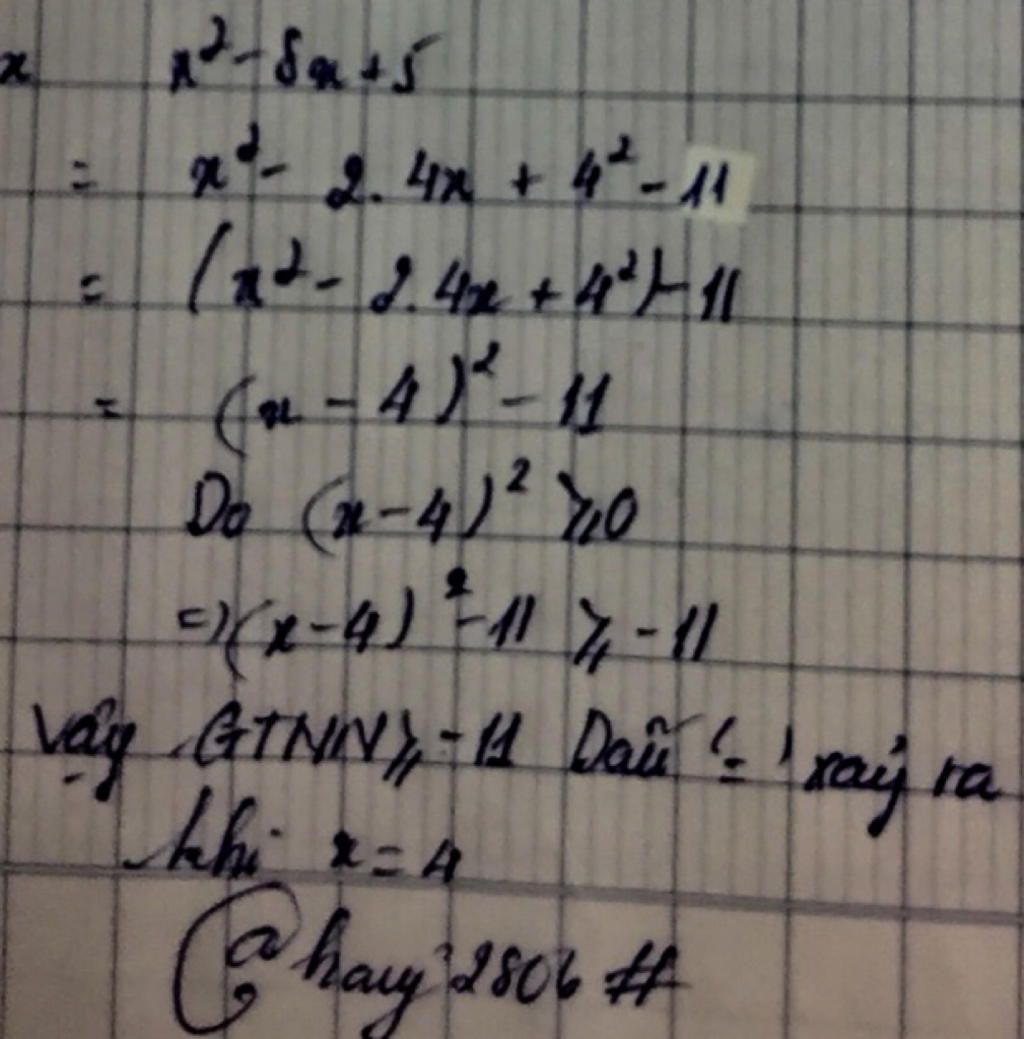 x x² - 8x + 5
= x² - 2.4x + 4² - 11
= (x² - 2.4x + 4²) - 11
= (x - 4)² - 11
Do (x - 4)² ⩾ 0
=> (x - 4)² - 11 ⩾ - 11
Vậy GTNN ⩾ - 11 Dấu '=' xảy ra
khi x = 4
2806 #